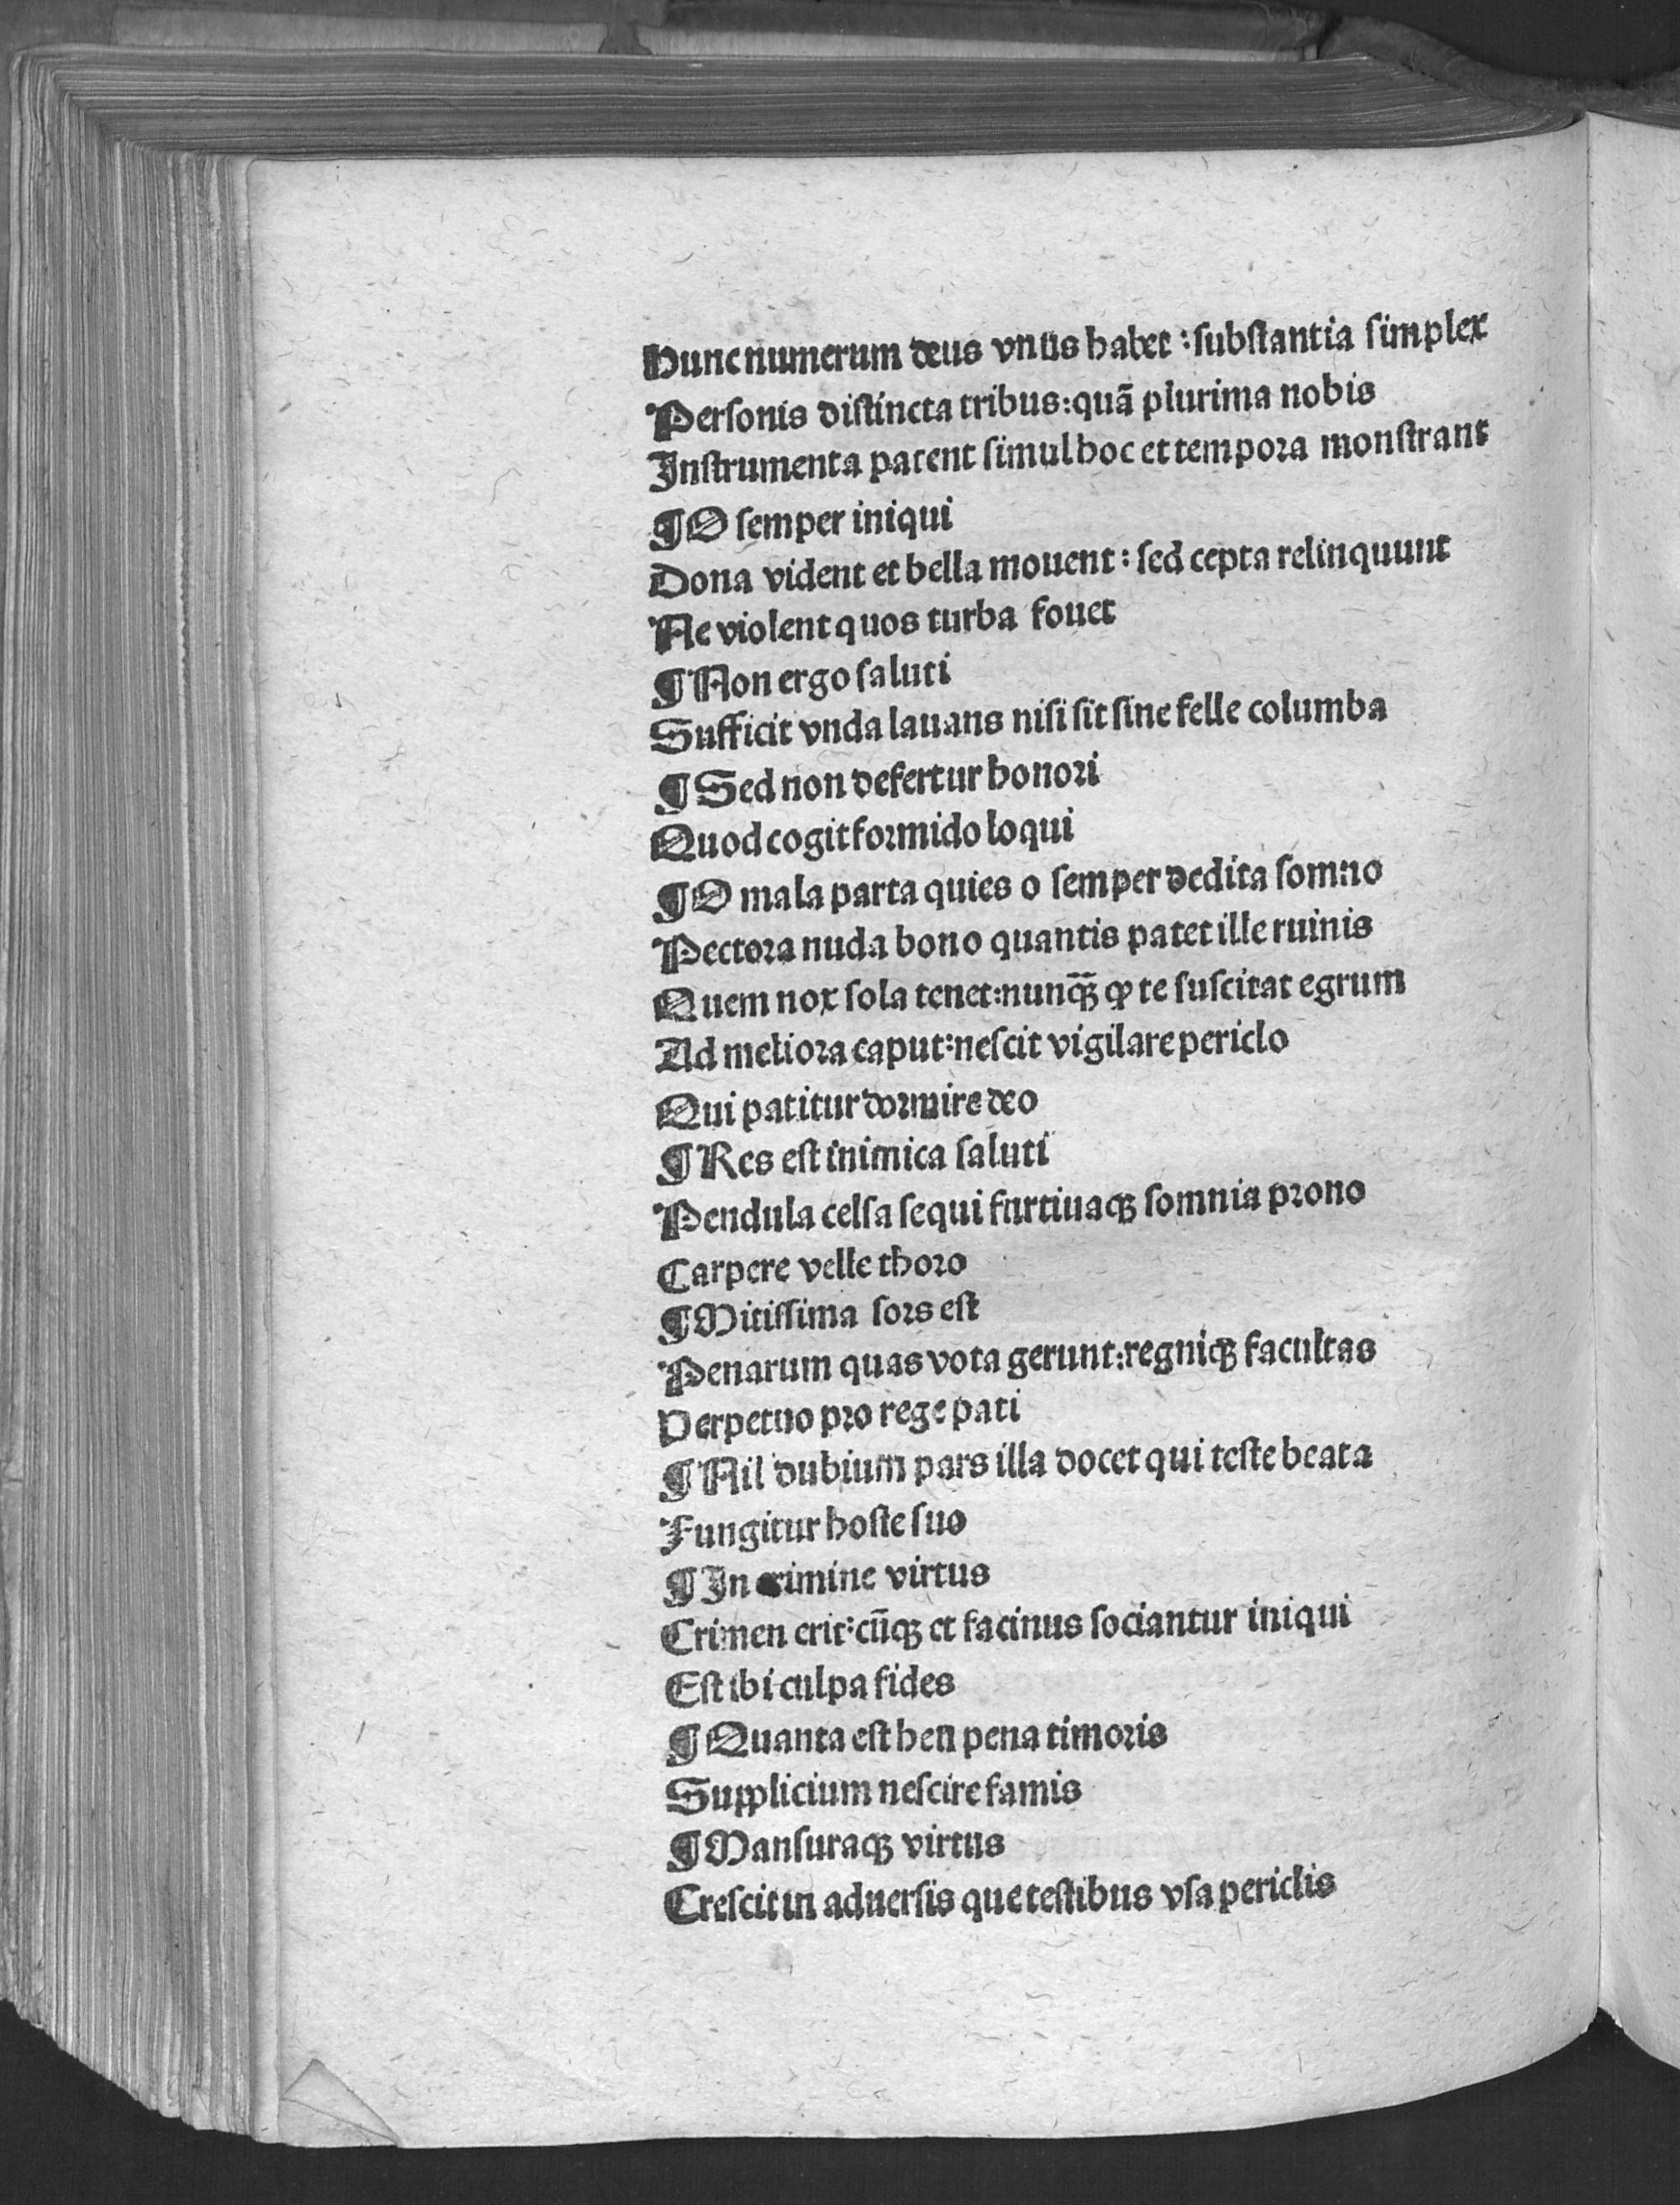 Hunc numerum deus vnus habet : ſubſtantia ſimplex
Perſonis diſtincta tribus: quā plurima nobis
Inſtrumenta patent ſimul hoc et tempora monſtrant
¶ O ſemper iniqui
Dona vident et bella mouent : ſed cepta relinquunt
Ne violent quos turba fouet
¶ Non ergo ſaluti
Sufficit vnda lauans niſi ſit ſine felle columba
¶ Sed non defertur honori
Quod cogit formido loqui
¶ O mala parta quies o ſemper dedita ſomno
Pectora nuda bono quantis patet ille ruinis
Quem nox ſola tenet: nunqꝫ̄ ꝙ te ſuſcitat egrum
Ad meliora caput: neſcit vigilare periclo
Qui patitur dormire deo
¶ Res eſt inimica ſaluti
Pendula celſa ſequi furtiuaqꝫ ſomnia prono
Carpere velle thoro
¶ Mitiſſima ſors eſt
Penarum quas vota gerunt: regniqꝫ facultas
Perpetuo pro rege pati
¶ Nil dubium pars illa docet qui teſte beata
Fungitur hoſte ſuo
¶ In crimine virtus
Crimen erit: cūqꝫ et facinus ſociantur iniqui
Eſt ibi culpa fides
¶ Quanta eſt heu pena timoris
Supplicium neſcire famis
¶ Manſuraqꝫ virtus
Creſcit in aduerſis que teſtibus vſa periclis